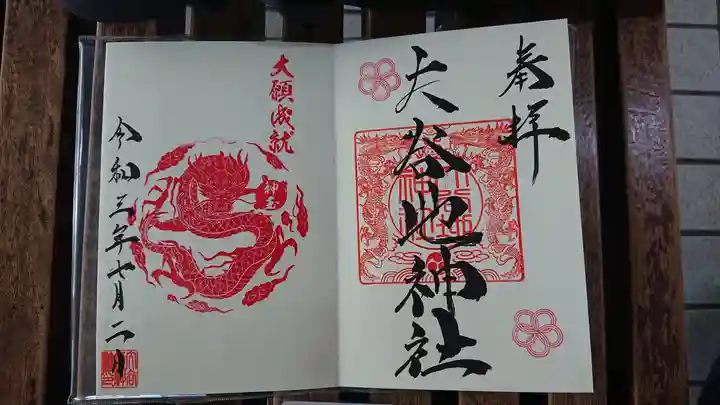 奉拝
大谷地神社
大願成就
令和三年七月二日